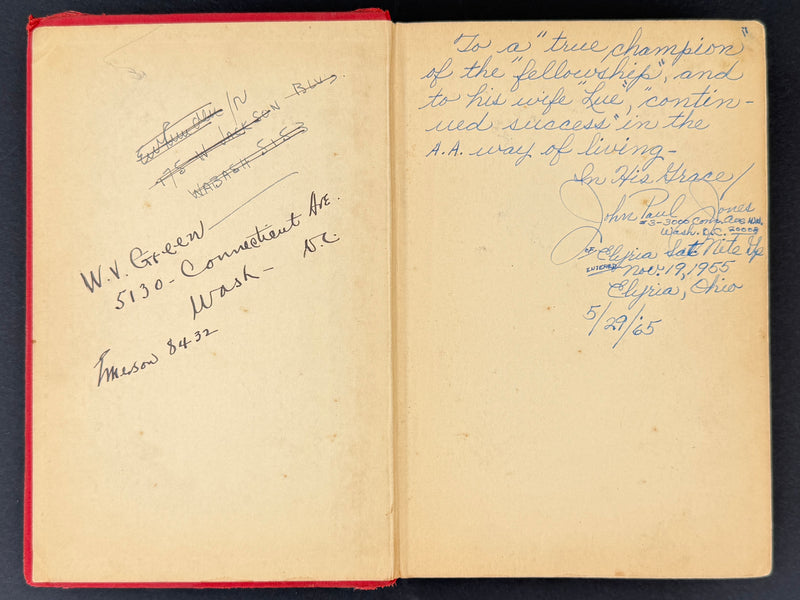 175 N JACKSON BLVD.
WABASH
W.V. Green
5130 - Connecticut Ave.
Wash - DC.
Emerson 8432
To a "true champion"
of the "fellowship", and
to his wife "Lue", "contin-
ued success" in the
A.A. way of living -
In His Grace/
John Paul Jones
#3-3000 Conn. Ave N.W.
Wash. D.C. 20008
Elyria Sat Nite Gp
ENTERED Nov. 19, 1955
Elyria, Ohio
5/29/65